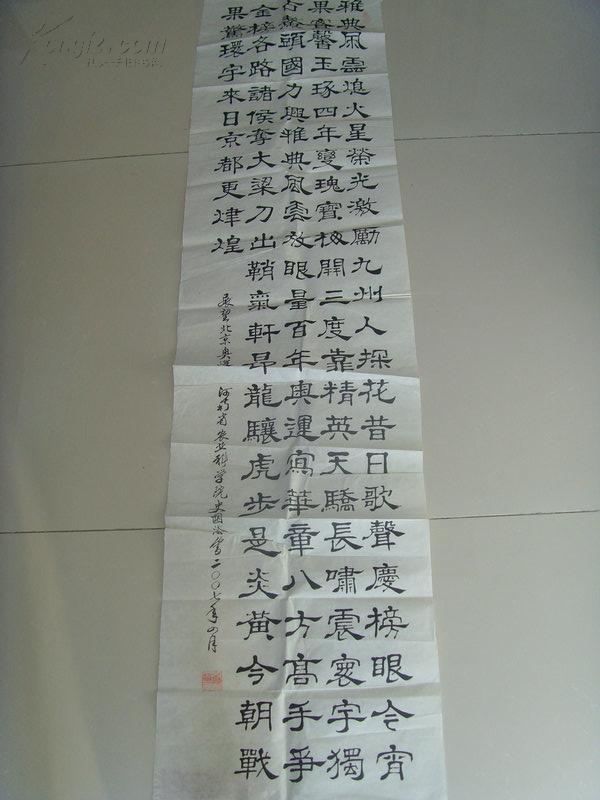 雅典風雲焰火星榮光激勵九州人探花昔日歌聲慶榜眼今宵
果實馨玉琢四年變瑰寶梅開三度靠精英天驕長嘯震寰宇獨
占鰲頭國力興雅典風雲放眼量百年奧運寫華章八方高手爭
金榜各路諸侯奪大梁刀出鞘氣軒昂龍驤虎步是炎黃今朝戰
果驚環宇來日京都更煒煌
展望北京奧運 河南省农业科学院史國 書二〇〇七年四月